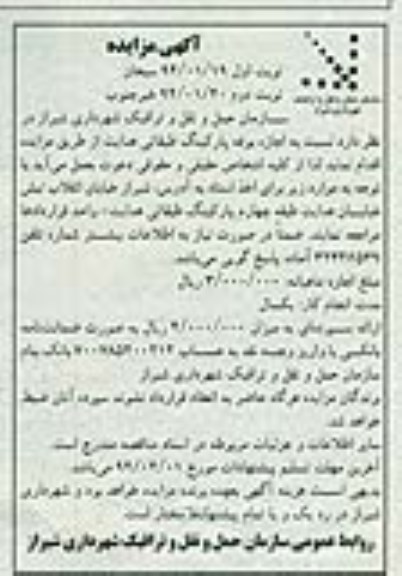 آگهی مزایده
نوبت اول ۹۴/۰۱/۱۹ سبحان
نوبت دوم ۹۴/۰۱/۳۰ خبرجنوب
سازمان حمل و نقل و ترافیک شهرداری شیراز در
نظر دارد نسبت به اجاره بوفه پارکینگ طبقاتی هدایت از طریق مزایده
اقدام نماید لذا از کلیه اشخاص حقیقی و حقوقی دعوت بعمل می‌آید با
توجه به موارد زیر برای اخذ اسناد به آدرس: شیراز خیابان انقلاب نبش
خیابان هدایت طبقه چهارم پارکینگ طبقاتی هدایت - واحد قراردادها
مراجعه نمایند. ضمناً در صورت نیاز به اطلاعات بیشتر شماره تلفن
آماده پاسخ گویی می‌باشد.
مبلغ اجاره ماهیانه: ۳/۰۰۰/۰۰۰ ریال
مدت انجام کار: یکسال
ارائه سپرده‌ای به میزان ۲/۰۰۰/۰۰۰ ریال به صورت ضمانت‌نامه
بانکی یا واریز وجه نقد به حساب بانک
سازمان حمل و نقل و ترافیک شهرداری شیراز
برندگان مزایده هرگاه حاضر به انعقاد قرارداد نشوند سپرده آنان ضبط
خواهد شد.
سایر اطلاعات و جزئیات مربوطه در اسناد مناقصه مندرج است.
آخرین مهلت تسلیم پیشنهادات مورخ می‌باشد.
بدیهی است هزینه آگهی بعهده برنده مزایده خواهد بود و شهرداری
شیراز در رد یک و یا تمام پیشنهادها مختار است
روابط عمومی سازمان حمل و نقل و ترافیک شهرداری شیراز